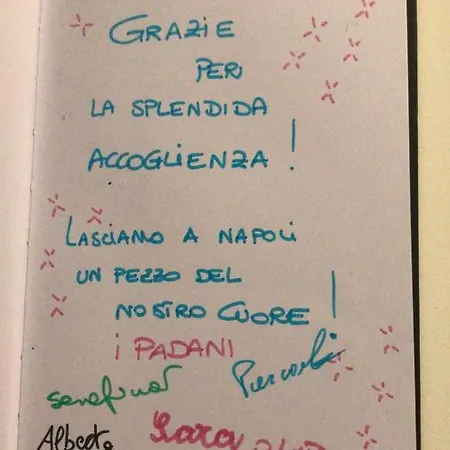 GRAZIE
PER
LA SPLENDIDA
ACCOGLIENZA!
LASCIAMO A NAPOLI
UN PEZZO DEL
NOSTRO CUORE!
I PADANI
Alberto
Sara